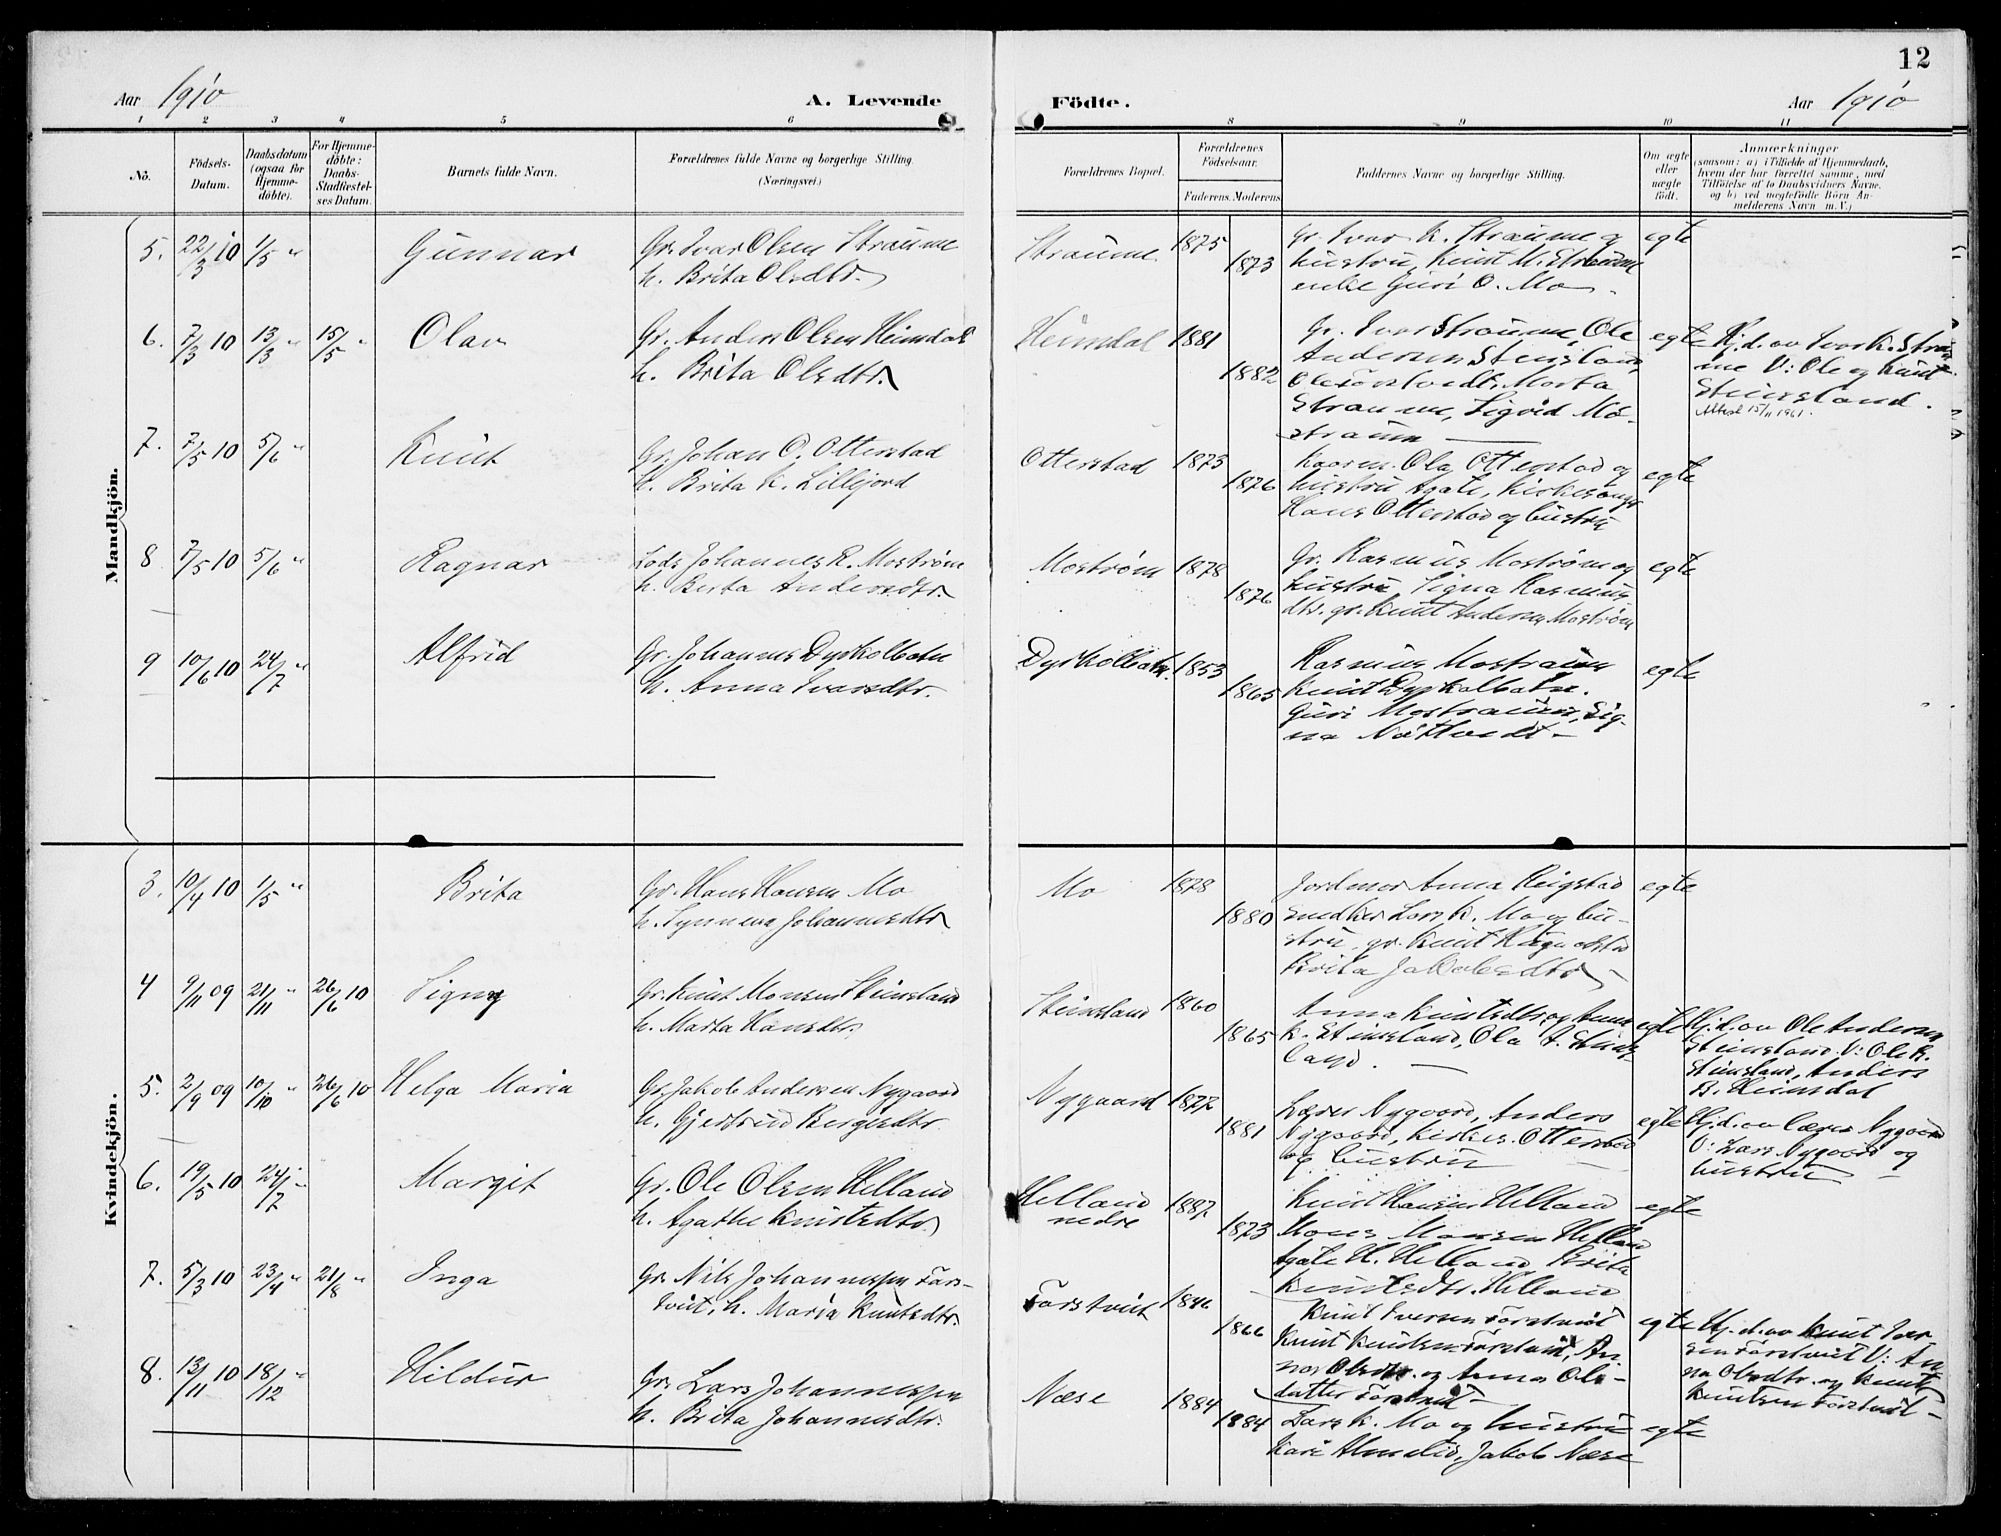 12
Aar 1910
A. Levende
Födte.
Aar 1910
1 2 3 4 5 6 8 9 10 11
No.
Födsels-
Datum.
Daabsdatum
(ogsaa for
Hjemme-
döbte).
For Hjemme-
döbte:
Daabs-
Stadfæstel-
ses Datum.
Barnets fulde Navn.
Forældrenes fulde Navne og borgerlige Stilling
(Næringsvei.)
Forældrenes Bopæl.
Forældrenes
Födselsaar.
Faderens. Moderens.
Faddernes Navne og borgerlige Stilling.
Om ægte
eller
uægte
födt.
Anmærkninger
(saasom: a) i Tilfælde af Hjemmedaab,
hvem der har forrettet samme, med
Tilföielse af to Daabsvidners Navne,
og b) ved uægtefödte Börn An-
melderens Navn m. V.)
Mandkjön.
5. 22/3 10 1/5 " Gunnar
Gr. Ivar Olsen Straume
h. Brita Olsdtr.
Straume 1875
1873
Gr. Ivar K. Straume og
hustru, Knut M. Straume
enke Guri O. Mo
egte
6. 7/3 10 13/3 " 15/5 " Olav
Gr. Anders Olsen Heimdal
h. Brita Olsdtr.
Heimdal 1881
1882
Gr. Ivar Straume, Ole
Andersen Steinsland,
Ole Farstvedt, Marta
Straume, Sigvid Mo-
straum
egte
Hj. d. av Ivar K. Strau
me V: Ole og Knut
Steinsland.
Attest 15/11 1961.
7. 7/5 10 5/6 " Knut
Gr. Johan O. Otterstad
h. Brita K. Lillejord
Otterstad 1873
1876
Ola Otterstad og
hustru Agate, kirkesanger
Hans Otterstad og hustru
egte
8 7/5 10 5/6 " Ragnar
Lods Johannes R. Mostrøm
h. Berta Andersdtr.
Mostrøm 1878
1876
Gr. Rasmus Mostrøm og
hustru, Signa Rasmus
dtr. gr. Knut Andersen Mostrøm
egte
9 10/6 10 24/7 " Alfrid
Gr. Johannes Dyrkolbotn
h. Anna Ivarsdtr.
Dyrkolbotn. 1853
1865
Rasmus Mostraum
Knut Dyrkolbotn.
Guri Mostraum, Sig-
na Nøttveit
egte
Kvindekjön.
3. 10/4 10 1/5 " Brita
Gr. Hans Hansen Mo
h. Synneva Johannesdtr
Mo 1878
1880
Jordmor Anna Reigstad
snedker Lars K. Mo og hu-
stru, gr. Knut
Brita Jakobsdtr
egte
4 9/11 09 21/11 " 26/6 10 Signy
Gr. Knut Monsen Steinsland
h. Marta Hansdtr.
Steinsland 1860
1865
Anna Knutsdtr og Anna
K. Steinsland, Ola A. Steins
land.
egte
Hj. d. av Ole Andersen
Steinsland. V: Ole K.
Steinsland, Anders
B. Heimdal
5. 2/9 09 10/10 " 26/6 10 Helga Maria
Gr. Jakob Andersen Nygaard
h. Gjertrud Bergesdtr.
Nygaard 1877
1881
Lærer Nygaard, Anders
Nygaard, kirkes. Otterstad
og hustru
egte
Hj. d. av lærer Nygaard
V: Lars Nygaard og
hustru
6. 19/5 10 24/7 " Margit
Gr. Ole Olsen Helland
h. Agathe Knutsdtr.
Helland
nedre
1887
1873
Knut Hansen Helland
Mons Monsen Helland
Agate H. Helland Brita
Knutsdtr. Helland
egte
7. 5/3 10 23/4 " 21/8 " Inga
Gr. Nils Johannessen Fars-
tvut, h. Maria Knutsdtr.
Farstveit 1846
1866
Knut Iversen Farstveit
Knut Knutsen Farstveit, An
na Olsdtr. og Anna Ols-
datter Farstveit
egte
Hj. d. av Knut Iver
sen Farstveit V: An
na Olsdtr. og Knut
Knutsen Farstveit
8. 13/11 10 18/12 " Hildur
Gr. Lars Johannessen
h. Brita Johannesdtr.
Næse 1884
1884
Lars K. Mo og hustru
Kari Almelid, Jakob Næse
egte